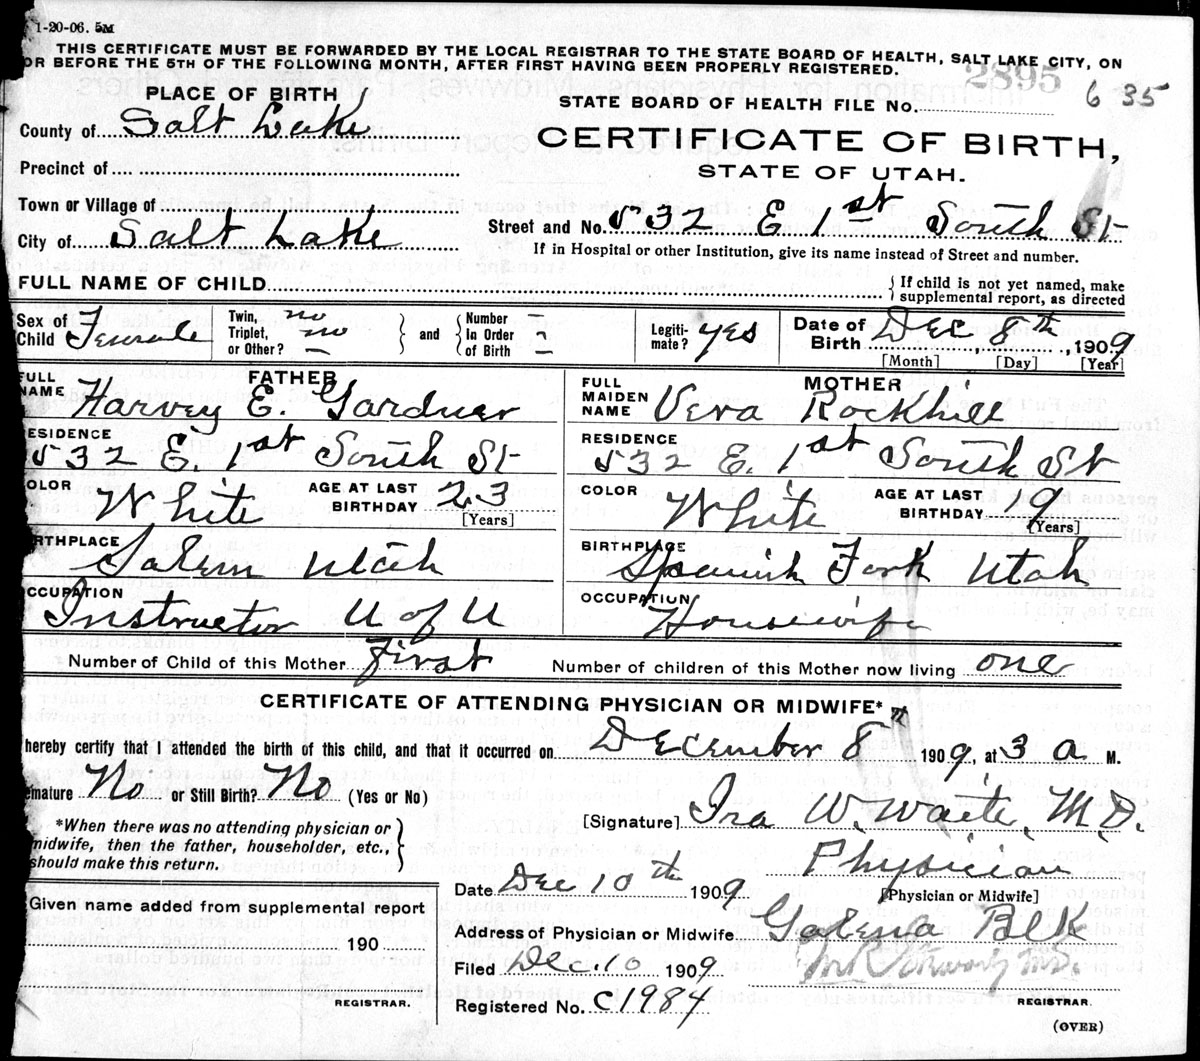 1-20-06. 5M
THIS CERTIFICATE MUST BE FORWARDED BY THE LOCAL REGISTRAR TO THE STATE BOARD OF HEALTH, SALT LAKE CITY, ON
OR BEFORE THE 5TH OF THE FOLLOWING MONTH, AFTER FIRST HAVING BEEN PROPERLY REGISTERED.
2895
635
PLACE OF BIRTH
STATE BOARD OF HEALTH FILE No.
County of Salt Lake
CERTIFICATE OF BIRTH,
STATE OF UTAH.
Precinct of
Town or Village of
Street and No. 532 E 1st South St
City of Salt Lake
If in Hospital or other Institution, give its name instead of Street and number.
FULL NAME OF CHILD
If child is not yet named, make
supplemental report, as directed
Sex of Child Female
Twin, no
Triplet, no
or Other? —
and
Number —
In Order —
of Birth —
Legiti-
mate? yes
Date of Birth Dec 8th, 1909
[Month] [Day] [Year]
FATHER
FULL NAME Harvey E. Gardner
RESIDENCE
532 E. 1st South St
COLOR White
AGE AT LAST BIRTHDAY 23
[Years]
BIRTHPLACE
Salem Utah
OCCUPATION
Instructor U of U
MOTHER
FULL MAIDEN NAME Vera Rockhill
RESIDENCE
532 E. 1st South St
COLOR White
AGE AT LAST BIRTHDAY 19
[Years]
BIRTHPLACE
Spanish Fork Utah
OCCUPATION
Housewife
Number of Child of this Mother First
Number of children of this Mother now living one
CERTIFICATE OF ATTENDING PHYSICIAN OR MIDWIFE*
hereby certify that I attended the birth of this child, and that it occurred on December 8th 1909, at 3 a M.
emature No or Still Birth? No (Yes or No)
[Signature] Ira W. Waite, M.D.
*When there was no attending physician or
midwife, then the father, householder, etc.,
should make this return.
Physician
[Physician or Midwife]
Date Dec 10th 1909
Given name added from supplemental report
190
REGISTRAR.
Address of Physician or Midwife Galena Blk
Filed Dec. 10 1909
REGISTRAR.
Registered No. C1984
(OVER)